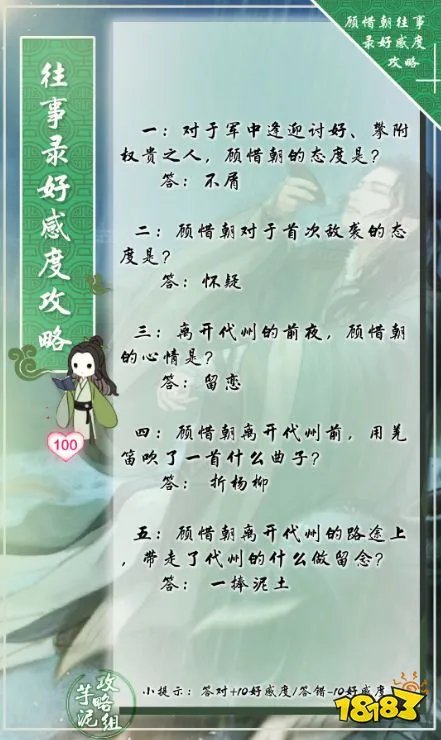 顾惜朝往事
录好感度
攻略
往事录好感度攻略
一：对于军中逢迎讨好、攀附
权贵之人，顾惜朝的态度是？
答：不屑
二：顾惜朝对于首次敌袭的态
度是？
答：怀疑
三：离开代州的前夜，顾惜朝
的心情是？
答：留恋
四：顾惜朝离开代州前，用羌
笛吹了一首什么曲子？
答：折杨柳
五：顾惜朝离开代州的路途上
，带走了代州的什么做留念？
答：一捧泥土
100
芋泥攻略组
小提示：答对+10好感度/答错-10好感度
18183